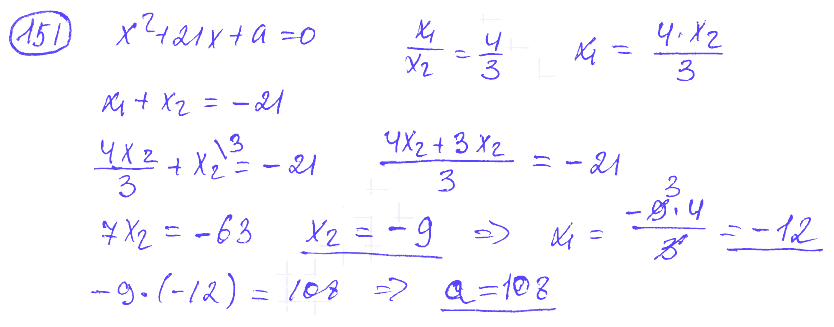 151 x²+21x+a=0 x₁/x₂ = 4/3 x₁ = 4·x₂/3
x₁ + x₂ = -21
4x₂/3 + x₂\3 = -21 (4x₂+3x₂)/3 = -21
7x₂ = -63 x₂ = -9 => x₁ = -9·4/3 3 = -12
-9·(-12) = 108 => a=108